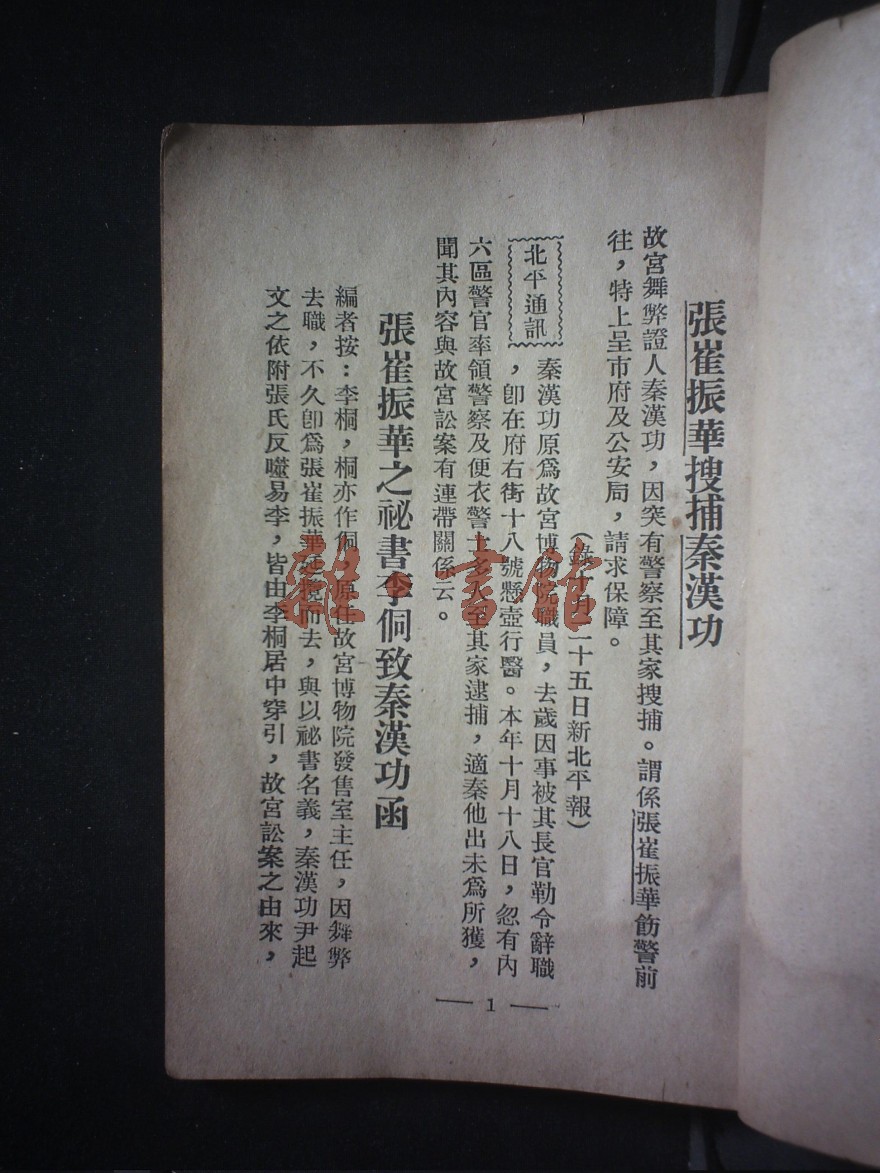 張崔振華搜捕秦漢功
故宮舞弊證人秦漢功，因突有警察至其家搜捕。謂係張崔振華飭警前
往，特上呈市府及公安局，請求保障。
（錄十月二十五日新北平報）
北平通訊
秦漢功原爲故宮博物院職員，去歲因事被其長官勒令辭職
，卽在府右街十八號懸壺行醫。本年十月十八日，忽有內
六區警官率領警察及便衣警士多人至其家逮捕，適秦他出未爲所獲，
聞其內容與故宮訟案有連帶關係云。
張崔振華之祕書李侗致秦漢功函
編者按：李桐，桐亦作侗，原任故宮博物院發售室主任，因舞弊
去職，不久卽爲張崔振華延攬而去，與以祕書名義，秦漢功尹起
文之依附張氏反噬易李，皆由李桐居中穿引，故宮訟案之由來，
— 1 —
雜·書館